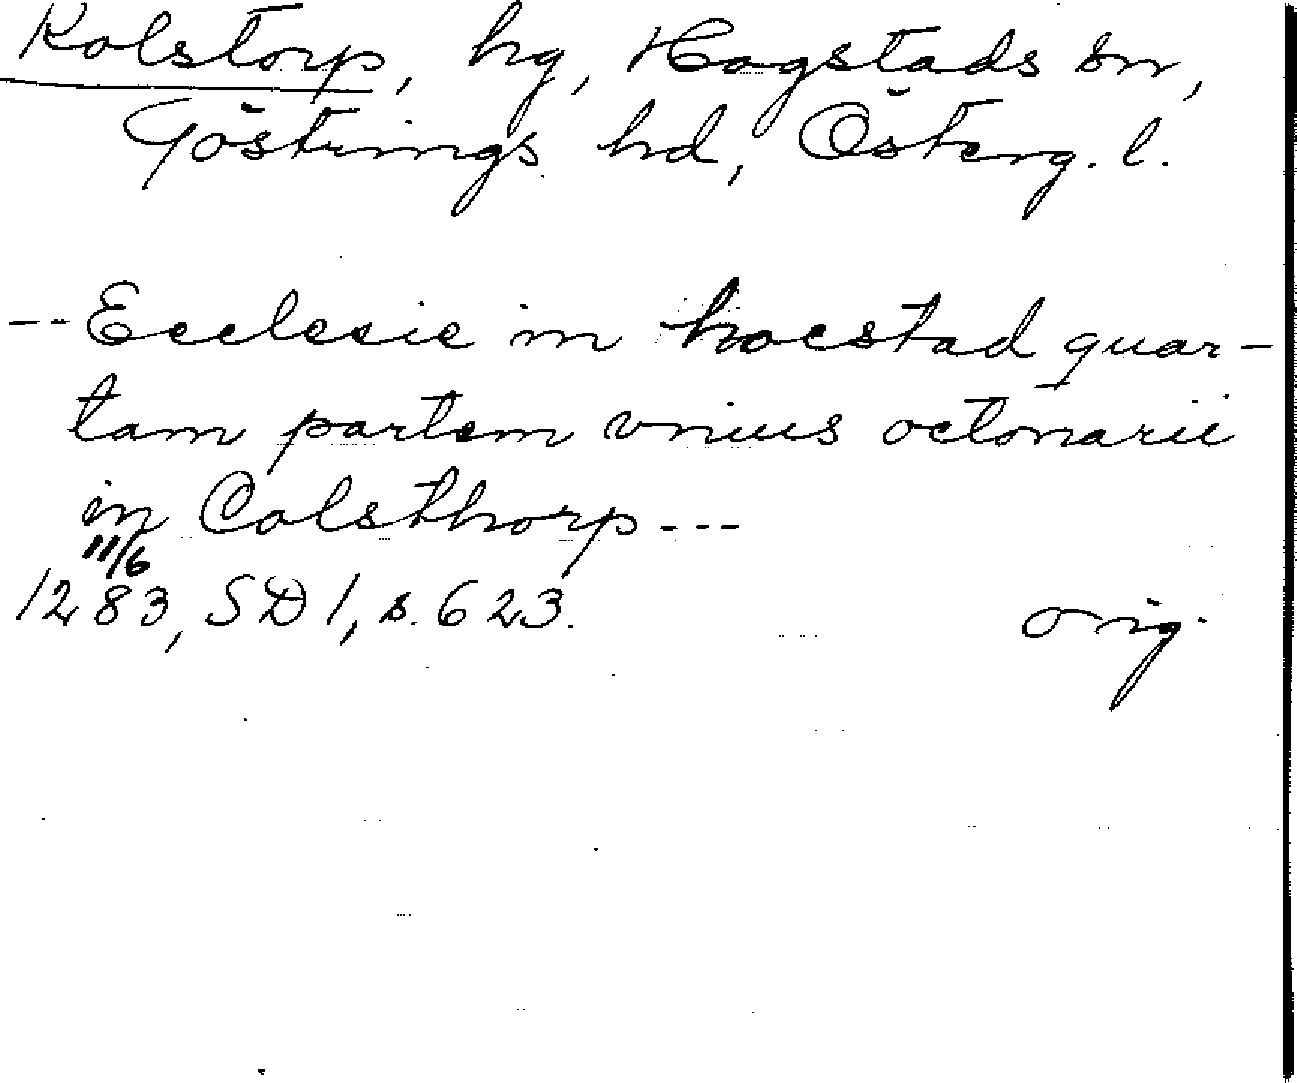 Kolstorp, hg, Hogstads sn,
Göstrings hd, Österg. l.
-- Ecclesie in hocstad quar-
tam partem vnius octonarii
in Colsthorp ---
11/6
1283, SD 1, s. 623.
orig.